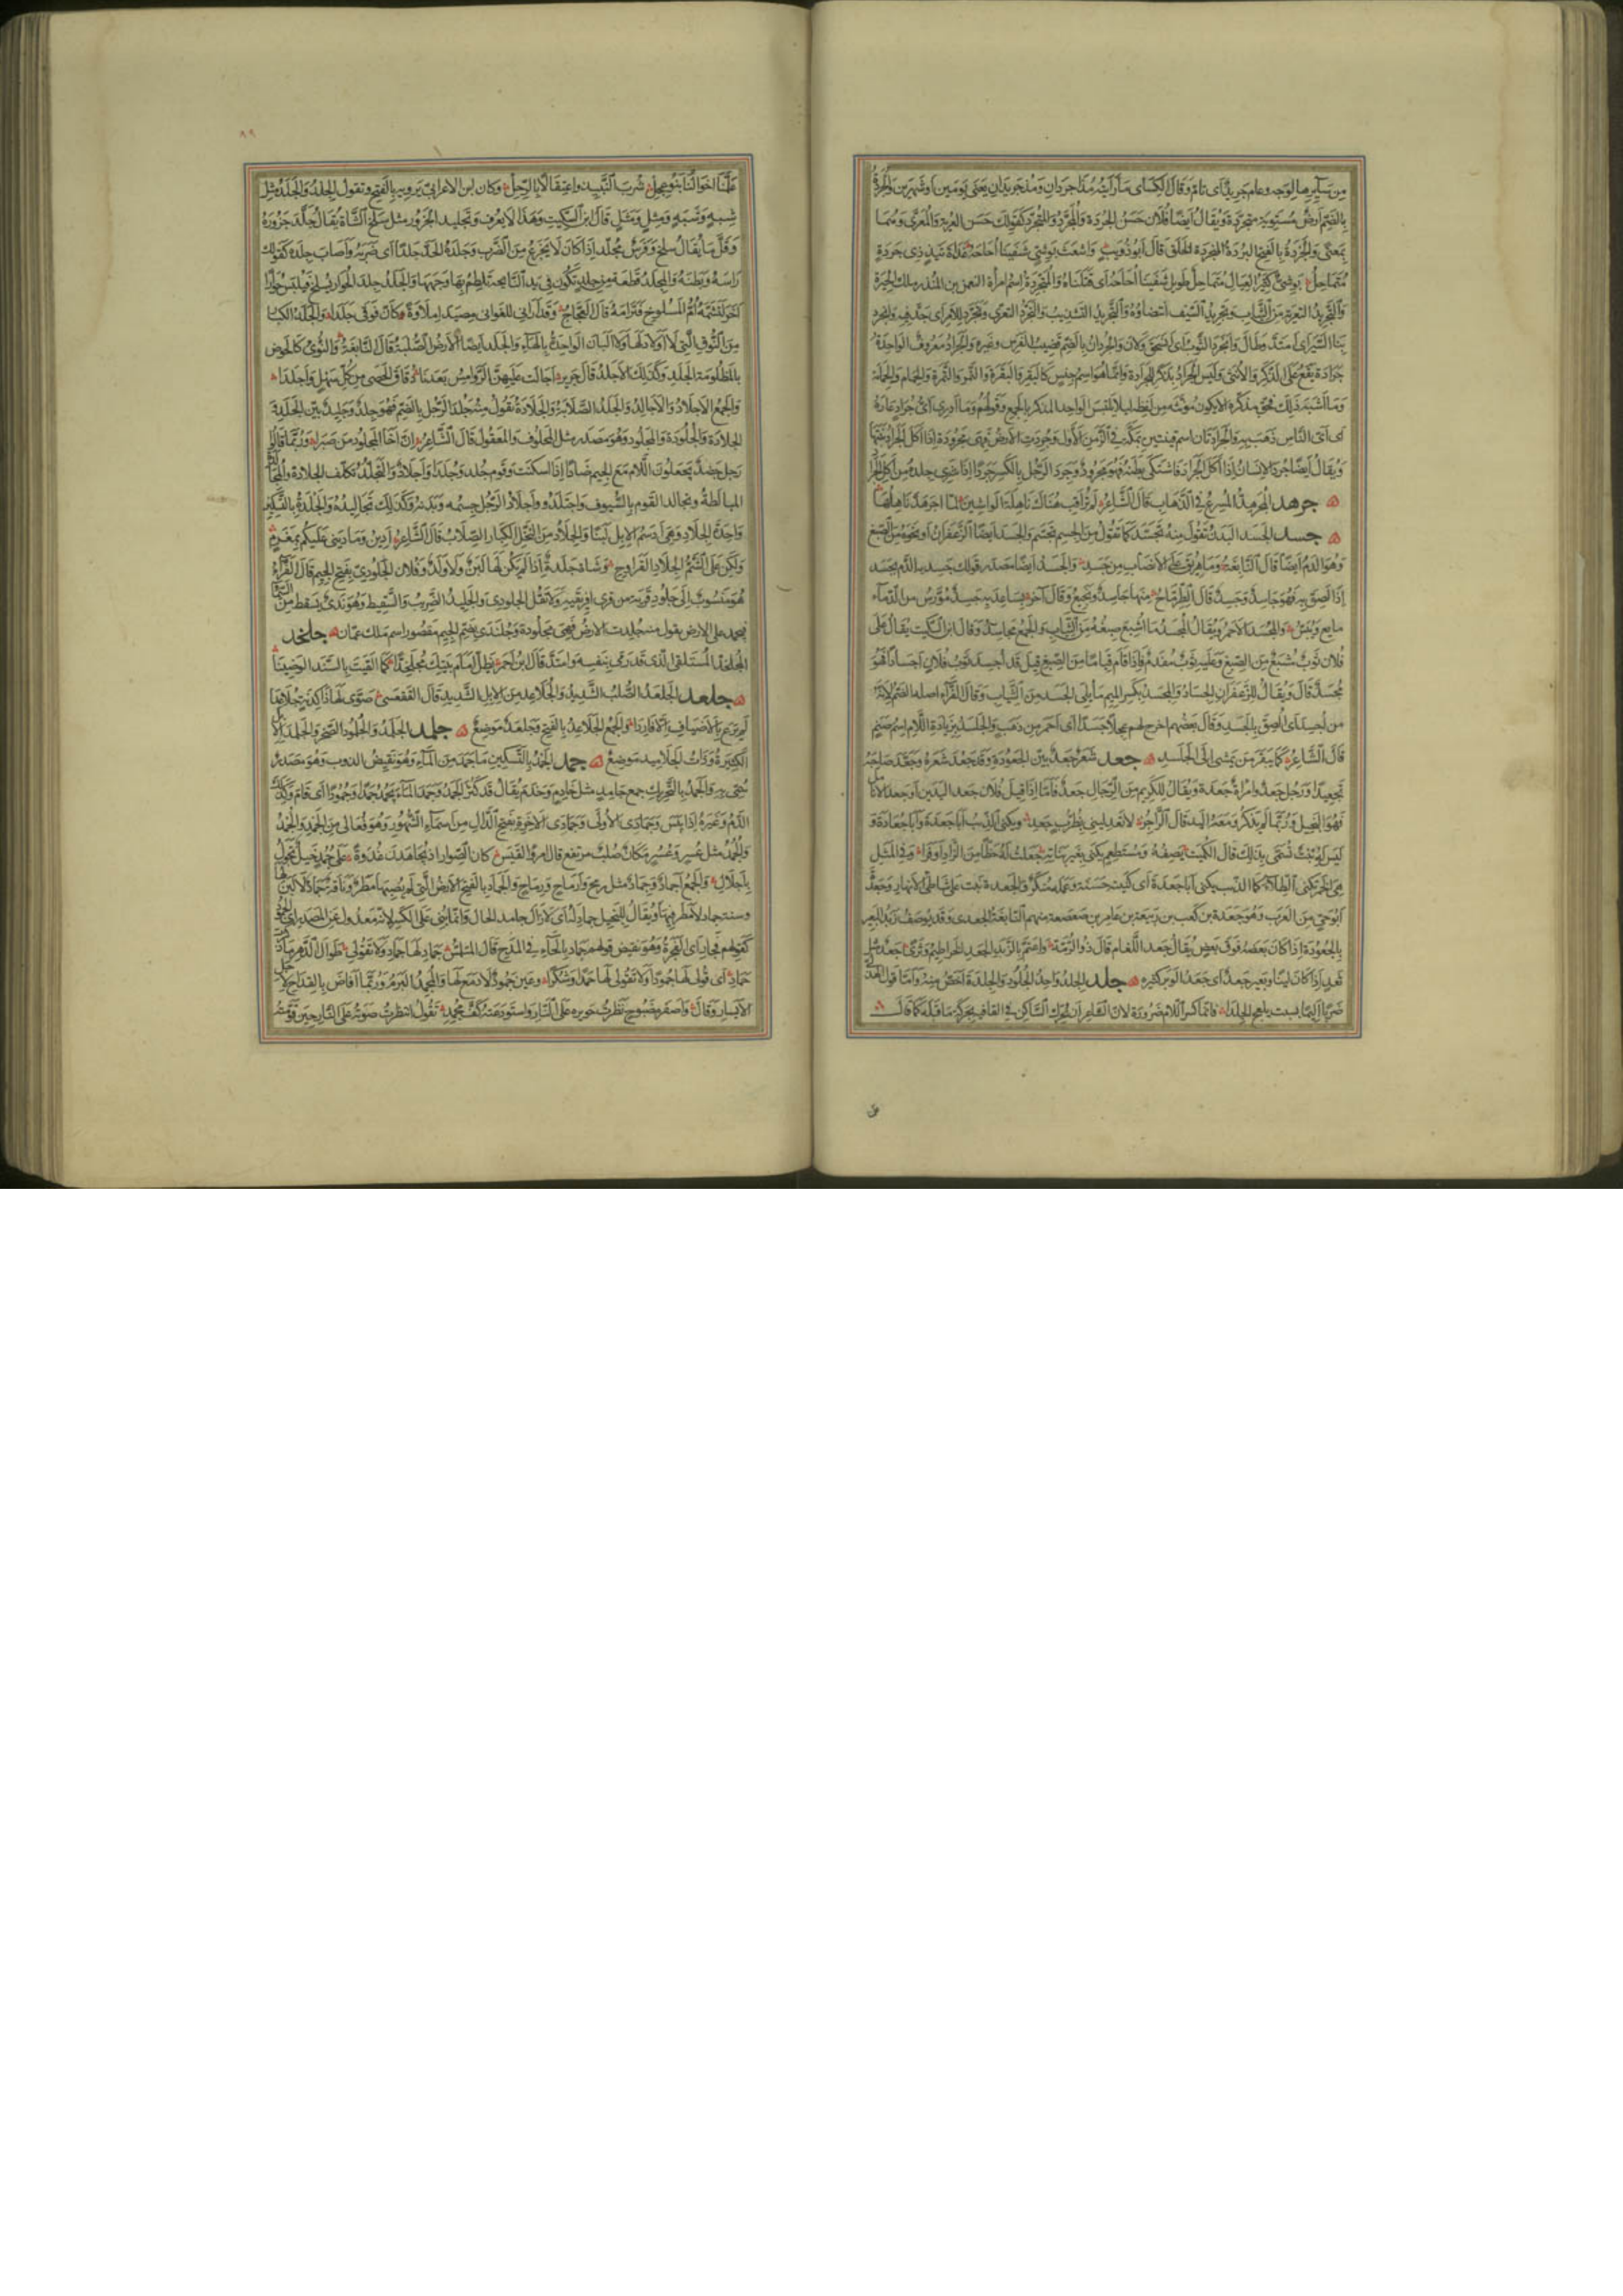 من سايرها لوجه وعام جريد اى تام وقال الكساى ما رايته مذ اجردان ومذ جريدان يعنى يومين او شهرين والجردة
بالضم ارض مستوية متجردة ويقال ايضا فلان حسن الجردة والمجرد والمتجرد كقولك حسن العرية والمعرى وهما
بمعنى والجردة بالفتح البردة المنجردة الخلق قال ابو ذؤيب واشعث بوشى شفينا احاحه غداتئذ ذى جردة
متماحل بوشى كثير العيال متماحل طويل شفينا احاحه اى قتلناه والمتجردة اسم امراة النعمن بن المنذر ملك الحيرة
والتجريد التعرية من الثياب وتجريد السيف انتضاؤه والتجريد التشذيب والتجرد التعرى وتجرد للامر اى جد فيه وانجرد
بنا السير اى امتد وطال وانجرد الثوب اى انسحق ولان والجردان بالضم قضيب الفرس وغيره والجراد معروف الواحدة
جرادة يقع على الذكر والانثى وليس الجراد بذكر للجرادة وانما هو اسم جنس كالبقر والبقرة والتمر والتمرة والحمام والحمامة
وما اشبه ذلك فحق مذكره الا يكون مؤنثه من لفظه ليلا يلتبس الواحد المذكر بالجمع وقولهم وما ادرى اى جراد عاره
اى اى الناس ذهب به والجرادتان اسم قينتين بمكة فى الزمن الاول وجردت الارض فهى مجرودة اذا اكل الجراد نبتها
ويقال ايضا جرد الانسان اذا اكل الجراد فاشتكى بطنه فهو مجرود وجرد الرجل بالكسر جردا اذا شرى جلده من اكل الجراد
جرهد الجرهدة المسرع فى الذهاب قال الشاعر لم تراقب هناك ناهلة الواشين لما اجرهد ناهلها
جسد الجسد البدن تقول منه تجسد كما تقول من الجسم تجسم والجسد ايضا الزعفران او نحوه من الصبغ
وهو الدم ايضا قال النابغة وما هريق على الانصاب من جسد والجسد ايضا مصدر قولك جسد به الدم يجسد
اذا لصق به فهو جاسد وجسد قال الطرماح منها جاسد ونجيع وقال اخر بساعديه جسد مورس من الدماء
مايع ويبس والمجسد الاحمر ويقال المجسد ما اشبع صبغه من الثياب والجمع مجاسد وقال ابن السكيت يقال على
فلان ثوب مشبع من الصبغ وعليه ثوب مفدم فاذا قام قياما من الصبغ قيل قد اجسد ثوب فلان اجسادا فهو
مجسد قال ويقال للزعفران الجساد والمجسد بكسر الميم ما يلى الجسد من الثياب وقال الفراء اصله الضم لانه
من اجسد اى الصق بالجسد وقال بعضهم اخرج لهم عجلا جسدا اى احمر من ذهب والجلسد بزيادة اللام اسم صنم
قال الشاعر كما بيقر من يمشى الى الجلسد جعد شعر جعد بين الجعودة وقد جعد شعره وجعده صاحبه
تجعيدا ورجل جعد وامراة جعدة ويقال للكريم من الرجال جعد فاما اذا قيل فلان جعد اليدين او جعد الانامل
فهو البخيل وربما لم يذكر معه اليد قال الراجز لا تعدلينى بظرب جعد ويكنى الذيب ابا جعدة وابا جعادة و
ليس له بنت تسمى بذلك قال الكميت يصفه ومستطعم يكنى بغير بناته جعلت له حظا من الزاد اوفرا وفى المثل
هى الخمر تكنى الطلاء كما الذيب يكنى ابا جعدة اى كنيته حسنة وعمله منكر والجعدة نبت على شاطئ الانهار وجعد
ابو حى من العرب وهو جعدة بن كعب بن ربيعة بن عامر بن صعصعة منهم النابغة الجعدى وقد يوصف زبد البعير
بالجعودة اذا كان بعضه فوق بعض يقال جعد اللغام قال ذو الرمة واعتم بالزبد الجعد الخراطيم وثرى جعد مثل
ثعد اذا كان لينا وبعير جعد اى جعد الوبر كثيره جلد الجلد واحد الجلود والجلدة اخص منه واما قول الهذلى
ضربا اليما بسبت يلعج الجلدا فانما كسر اللام ضرورة لان للشاعر ان يحرك الساكن فى القافية بحركة ما قبله كما قال
٨٩
علمنا اخوالنا بنو عجل شرب النبيذ واعتقالا بالرجل وكان ابن الاعرابى يرويه بالفتح وتقول الجلد والجلد مثل
شبه وشبه ومثل ومثل قال ابن السكيت وهذا لا يعرف وتجليد الجزور مثل سلخ الشاة يقال جلد جزوره
وقل ما يقال سلخ وفرس مجلد اذا كان لا يجزع من الضرب وجلده الحد جلدا اى ضربه واصاب جلده كقولك
راسه وبطنه والمجلد قطعة من جلد تكون فى يد النايحة تلطم بها وجهها والجلد جلد الحوار يسلخ فيلبس حوارا
اخر لتشمه ام المسلوخ فترامه قال العجاج وقد ارانى للغوانى مصيدا ملاوة كان فوقى جلدا والجلد الكبار
من النوق التى لا اولاد لها ولا البان الواحدة بالهاء والجلد ايضا الارض الصلبة قال النابغة والنؤى كالحوض
بالمظلومة الجلد وكذلك الاجلد قال جرير اجالت عليهن الروامس بعدنا دقاق الحصى من كل سهل واجلدا
والجمع الاجلاد والاجالد والجلد الصلابة والجلادة تقول منه جلد الرجل بالضم فهو جلد وجليد بين الجلد
الجلادة والجلودة والمجلود وهو مصدر مثل المحلوف والمعقول قال الشاعر ان اخا المجلود من صبرا وربما قالوا
رجل جضد يجعلون اللام مع الجيم ضادا اذا سكنت وقوم جلد وجلداء واجلاد والتجلد تكلف الجلادة والمجالدة
المبالطة وتجالد القوم بالسيوف واجتلدوا واجلاد الرجل جسمه وبدنه وكذلك تجاليده والجلدة بالتسكين
واحدة الجلاد وهى ادسم الابل لبنا والجلاد من النخل الكبار الصلاب قال الشاعر ادين وما دينى عليكم بمغرم
ولكن على الشم الجلاد القراوح وشاة جلدة اذا لم يكن لها لبن ولا ولد وفلان الجلودى بفتح الجيم قال الفراء
هو منسوب الى جلود قرية من قرى افريقية ولا تقل الجلودى والجليد الضريب والسقيط وهو ندى يسقط من السماء
فيجمد على الارض يقول منه جلدت الارض فهى مجلودة وجلندى بضم الجيم مقصور اسم ملك عمان جلخد
المجلخد المستلقى الذى قد رمى بنفسه وامتد قال ابن احمر يظل امام بيتك مجلخدا كما القيت بالسند الوضينا
جلعد الجلعد الصلب الشديد والجلاعد من الابل الشديد قال الفقعسى صوى لها ذا كدنة جلاعدا
لم يرع بالاصياف الا فاردا والجمع الجلاعد بالفتح وجلعد موضع جلمد الجلمد والجلمود الصخر والجلمد الابل
الكثيرة وذات الجلاميد موضع جمد الجمد بالتسكين ما جمد من الماء وهو نقيض الذوب وهو مصدر
سمى به والجمد بالتحريك جمع جامد مثل خادم وخدم يقال قد كثر الجمد وجمد الماء يجمد جمدا وجمودا اى قام وكذلك
الدم وغيره اذا يبس وجمادى الاولى وجمادى الاخرة بفتح الدال من اسماء الشهور وهو فعالى من الجمد والجمد
والجمد مثل عسر وعسر مكان صلب مرتفع قال امرؤ القيس كان الصوار اذ تجاهدن غدوة على جمد خيل تجول
باجلال والجمع اجماد وجماد مثل رمح وارماح ورماح والجماد بالفتح الارض التى لم يصبها مطر وناقة جماد لا لبن لها
وسنة جماد لا مطر فيها ويقال للبخيل جماد له اى لا زال جامد الحال وانما بنى على الكسر لانه معدول عن المصدر اى الجمود
كقولهم فجار اى الفجرة وهو نقيض قولهم حماد بالحاء فى المدح قال المتلمس جماد لها جماد ولا تقولى طوال الدهر ما ذكرت
حماد اى قولى لها جمودا ولا تقولى لها حمدا وشكرا وعين جمود لا دمع لها والمجمد البرم وربما افاض بالقداح لاجل
الايسار وقال واصفر مضبوح نظرت حويره على النار واستودعته كف مجمد تقول انتظرت صوته على النار حين قومته